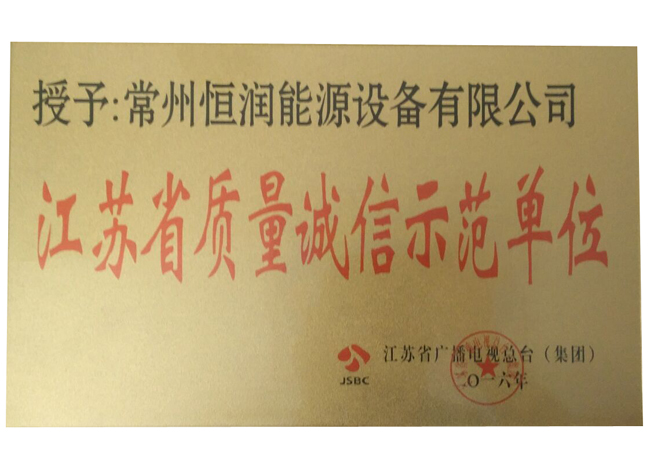 授予:常州恒润能源设备有限公司
江苏省质量诚信示范单位
JSBC
江苏省广播电视总台（集团）
二〇一六年